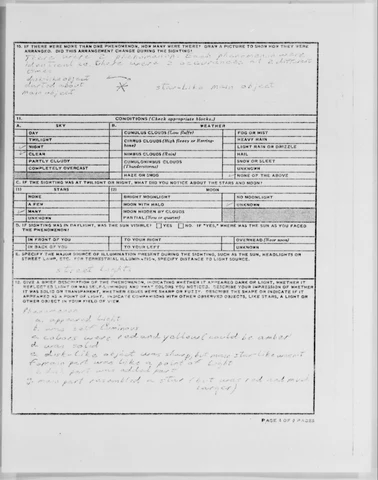 10. IF THERE WERE MORE THAN ONE PHENOMENON, HOW MANY WERE THERE? DRAW A PICTURE TO SHOW HOW THEY WERE
ARRANGED. DID THIS ARRANGEMENT CHANGE DURING THE SIGHTING?
There were 2 phenomena. Both phenomena were
identical as there were 2 occurrences at different
times
disklike object
started about
main object
starlike main object
11. CONDITIONS (Check appropriate blocks.)
A. SKY B. WEATHER
DAY CUMULUS CLOUDS (Low fluffy) FOG OR MIST
TWILIGHT CIRRUS CLOUDS (High fleecy or Herring-bone) HEAVY RAIN
✓ NIGHT LIGHT RAIN OR DRIZZLE
✓ CLEAR NIMBUS CLOUDS (Rain) HAIL
PARTLY CLOUDY CUMULONIMBUS CLOUDS (Thunderstorms) SNOW OR SLEET
COMPLETELY OVERCAST UNKNOWN
HAZE OR SMOG ✓ NONE OF THE ABOVE
C. IF THE SIGHTING WAS AT TWILIGHT OR NIGHT, WHAT DID YOU NOTICE ABOUT THE STARS AND MOON?
(1) STARS (2) MOON
NONE BRIGHT MOONLIGHT NO MOONLIGHT
A FEW MOON WITH HALO UNKNOWN
✓ MANY MOON HIDDEN BY CLOUDS
UNKNOWN PARTIAL (New or quarter)
D. IF SIGHTING WAS IN DAYLIGHT, WAS THE SUN VISIBLE? YES NO. IF "YES," WHERE WAS THE SUN AS YOU FACED
THE PHENOMENON?
IN FRONT OF YOU TO YOUR RIGHT OVERHEAD (Near noon)
IN BACK OF YOU TO YOUR LEFT UNKNOWN
E. SPECIFY THE MAJOR SOURCE OF ILLUMINATION PRESENT DURING THE SIGHTING, SUCH AS THE SUN, HEADLIGHTS OR
STREET LAMP, ETC. FOR TERRESTRIAL ILLUMINATION, SPECIFY DISTANCE TO LIGHT SOURCE.
street lights
12. GIVE A BRIEF DESCRIPTION OF THE PHENOMENON, INDICATING WHETHER IT APPEARED DARK OR LIGHT, WHETHER IT
REFLECTED LIGHT OR WAS SELF-LUMINOUS AND WHAT COLORS YOU NOTICED. DESCRIBE YOUR IMPRESSION OF WHETHER
IT WAS SOLID OR TRANSPARENT, WHETHER EDGES WERE SHARP OR FUZZY. DESCRIBE THE SHAPE OR INDICATE IF IT
APPEARED AS A POINT OF LIGHT. INDICATE COMPARISONS WITH OTHER OBSERVED OBJECTS, LIKE STARS, A LIGHT OR
OTHER OBJECT IN YOUR FIELD OF VIEW.
Phenomenon
a. appeared light
b. was self luminous
c. colors were red and yellow (could be amber
d. was solid
e. disk-like object was sharp, but main star-like wasn't
f. main part was like a point of light
part was added part
g. main part resembled a star (but was red and much
larger)
PAGE 4 OF 8 PAGES